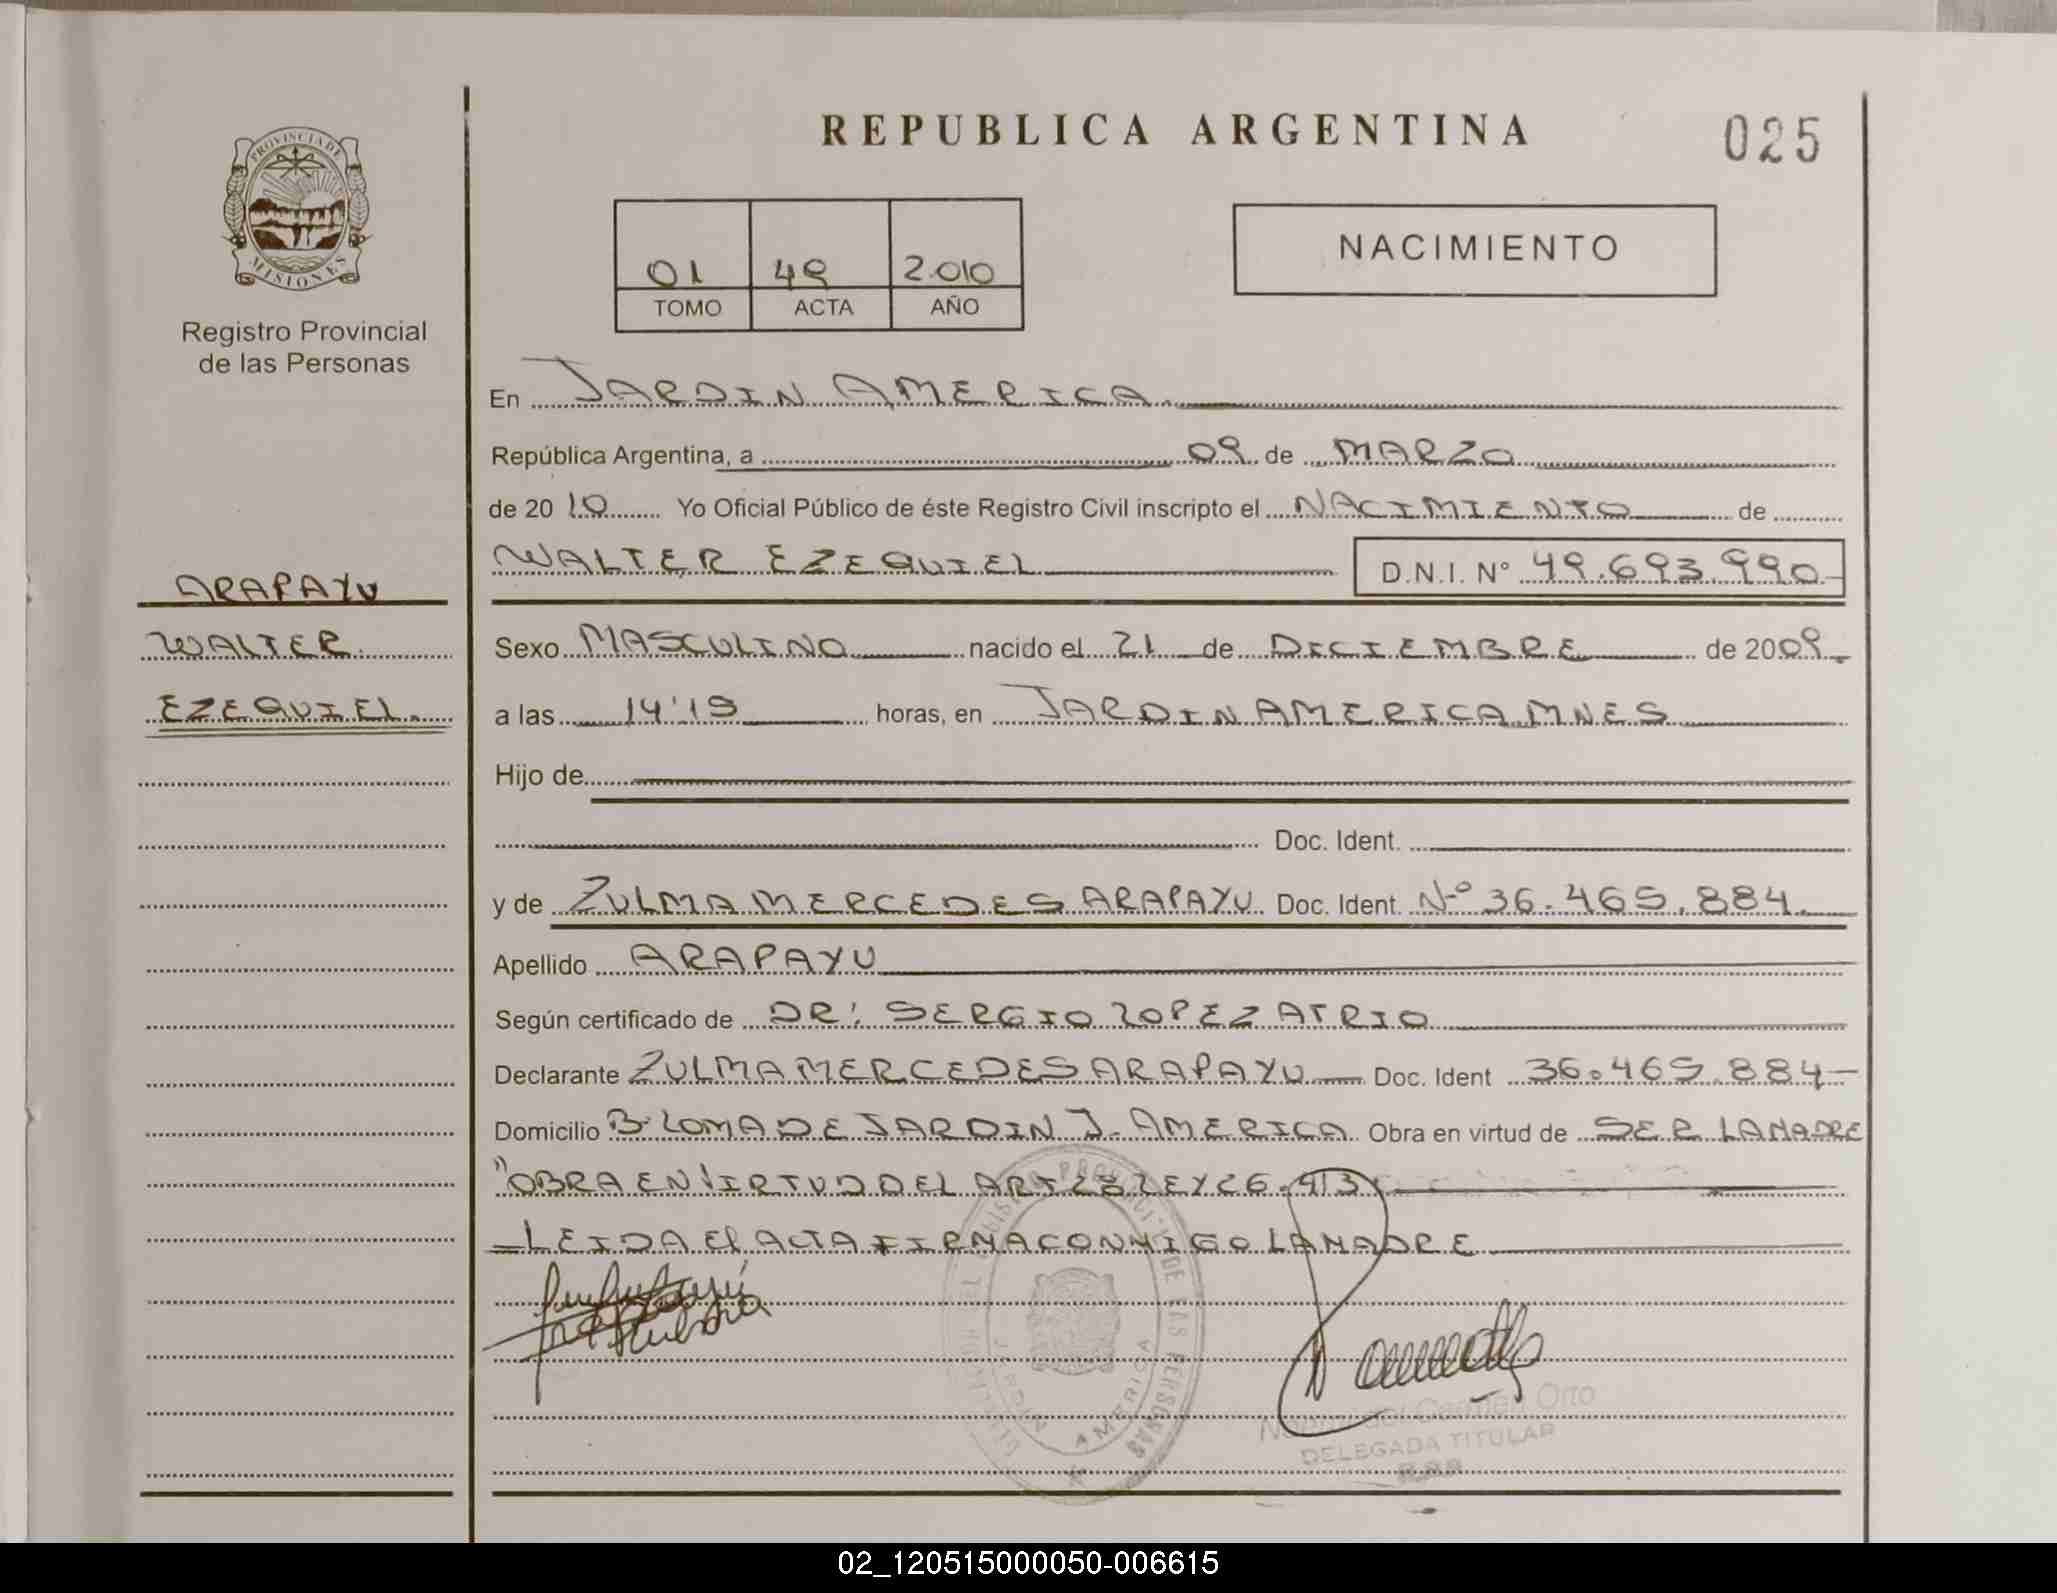 REPUBLICA ARGENTINA
025
PROVINCIA DE
MISIONES
Registro Provincial
de las Personas
01 49 2.010
TOMO ACTA AÑO
NACIMIENTO
En JARDIN AMERICA.
República Argentina, a 09 de MARZO
de 2010 Yo Oficial Público de éste Registro Civil inscripto el NACIMIENTO de
WALTER EZEQUIEL D.N.I. N° 49.693.990
ARAPAYU
WALTER
EZEQUIEL.
Sexo MASCULINO nacido el 21 de DICIEMBRE de 2009.
a las 14'15 horas, en JARDIN AMERICA MNES
Hijo de
Doc. Ident.
y de ZULMA MERCEDES ARAPAYU Doc. Ident. Nº 36.465.884.
Apellido ARAPAYU
Según certificado de DR: SERGIO LOPEZ ATRIO
Declarante ZULMA MERCEDES ARAPAYU Doc. Ident 36.465.884
Domicilio Bº LOMA DE JARDIN J. AMERICA Obra en virtud de SER LA MADRE
"OBRA EN VIRTUD DEL ART 28 LEY 26.413
LEIDA EL ACTA FIRMA CONMIGO LA MADRE
JARDIN AMERICA
del Carmen Orto
DELEGADA TITULAR
02_120515000050-006615